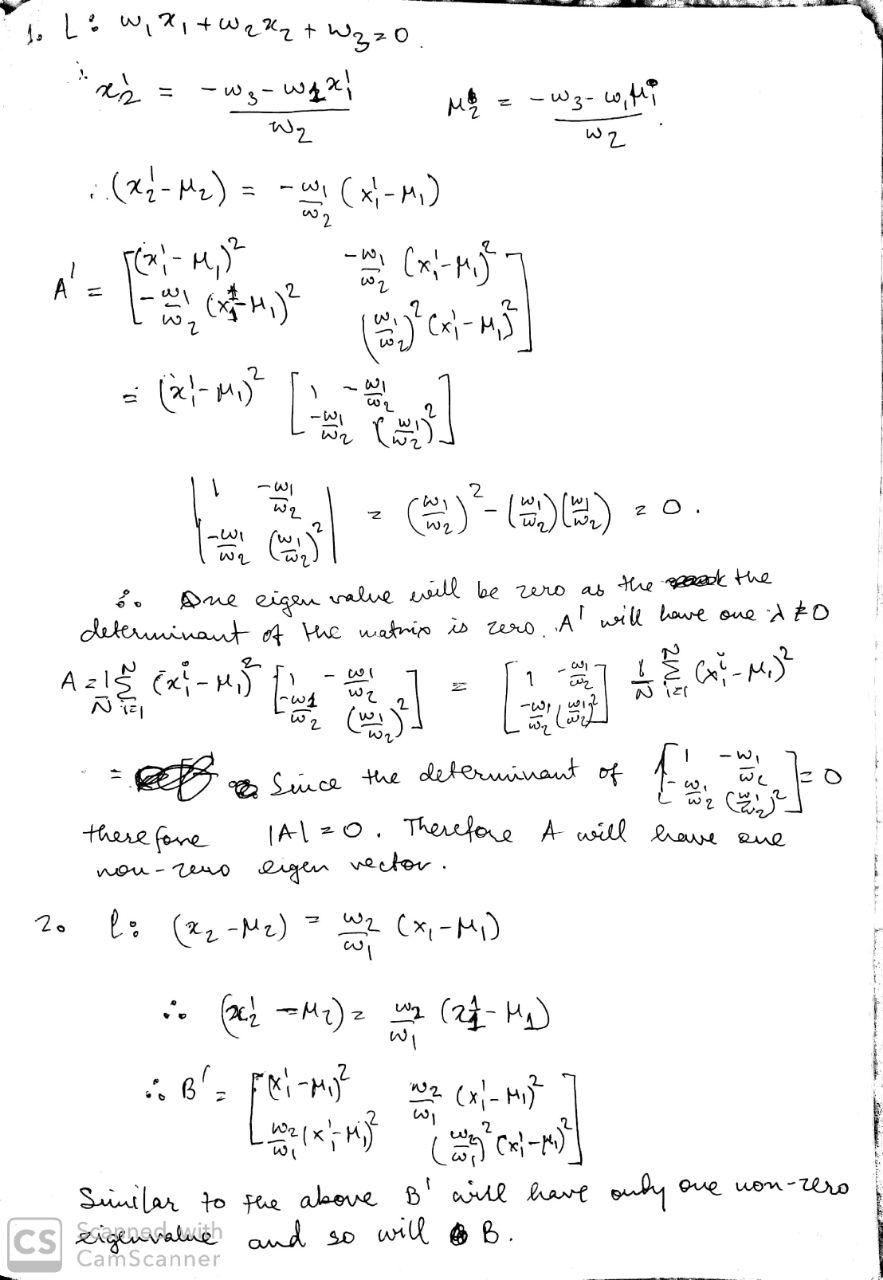 1. L: w₁x₁ + w₂x₂ + w₃ = 0.
∴ x₂¹ = (-w₃ - w₁x₁¹)/w₂    μ₂ = (-w₃ - w₁μ₁)/w₂.
∴ (x₂¹ - μ₂) = -w₁/w₂ (x₁¹ - μ₁)
A' = [(x₁¹ - μ₁)²    -w₁/w₂ (x₁¹ - μ₁)²
-w₁/w₂ (x₁¹ - μ₁)²    (w₁/w₂)² (x₁¹ - μ₁)²]
= (x₁¹ - μ₁)² [1    -w₁/w₂
-w₁/w₂    (w₁/w₂)²]
|1    -w₁/w₂
-w₁/w₂    (w₁/w₂)²| = (w₁/w₂)² - (w₁/w₂)(w₁/w₂) = 0.
∴ One eigen value will be zero as the the
determinant of the matrix is zero. A' will have one λ ≠ 0
A = 1/N Σᵢ₌₁ᴺ (x₁ⁱ - μ₁)² [1    -w₁/w₂
-w₁/w₂    (w₁/w₂)²] = [1    -w₁/w₂
-w₁/w₂    (w₁/w₂)²] 1/N Σᵢ₌₁ᴺ (x₁ⁱ - μ₁)²
= Since the determinant of [1    -w₁/w₂
-w₁/w₂    (w₁/w₂)²] = 0
therefore |A| = 0. Therefore A will have one
non-zero eigen vector.
2. l: (x₂ - μ₂) = w₂/w₁ (x₁ - μ₁)
∴ (x₂¹ - μ₂) = w₂/w₁ (x₁¹ - μ₁)
∴ B' = [(x₁¹ - μ₁)²    w₂/w₁ (x₁¹ - μ₁)²
w₂/w₁ (x₁¹ - μ₁)²    (w₂/w₁)² (x₁¹ - μ₁)²]
Similar to the above B' will have only one non-zero
eigenvalue and so will B.
CS Scanned with
CamScanner